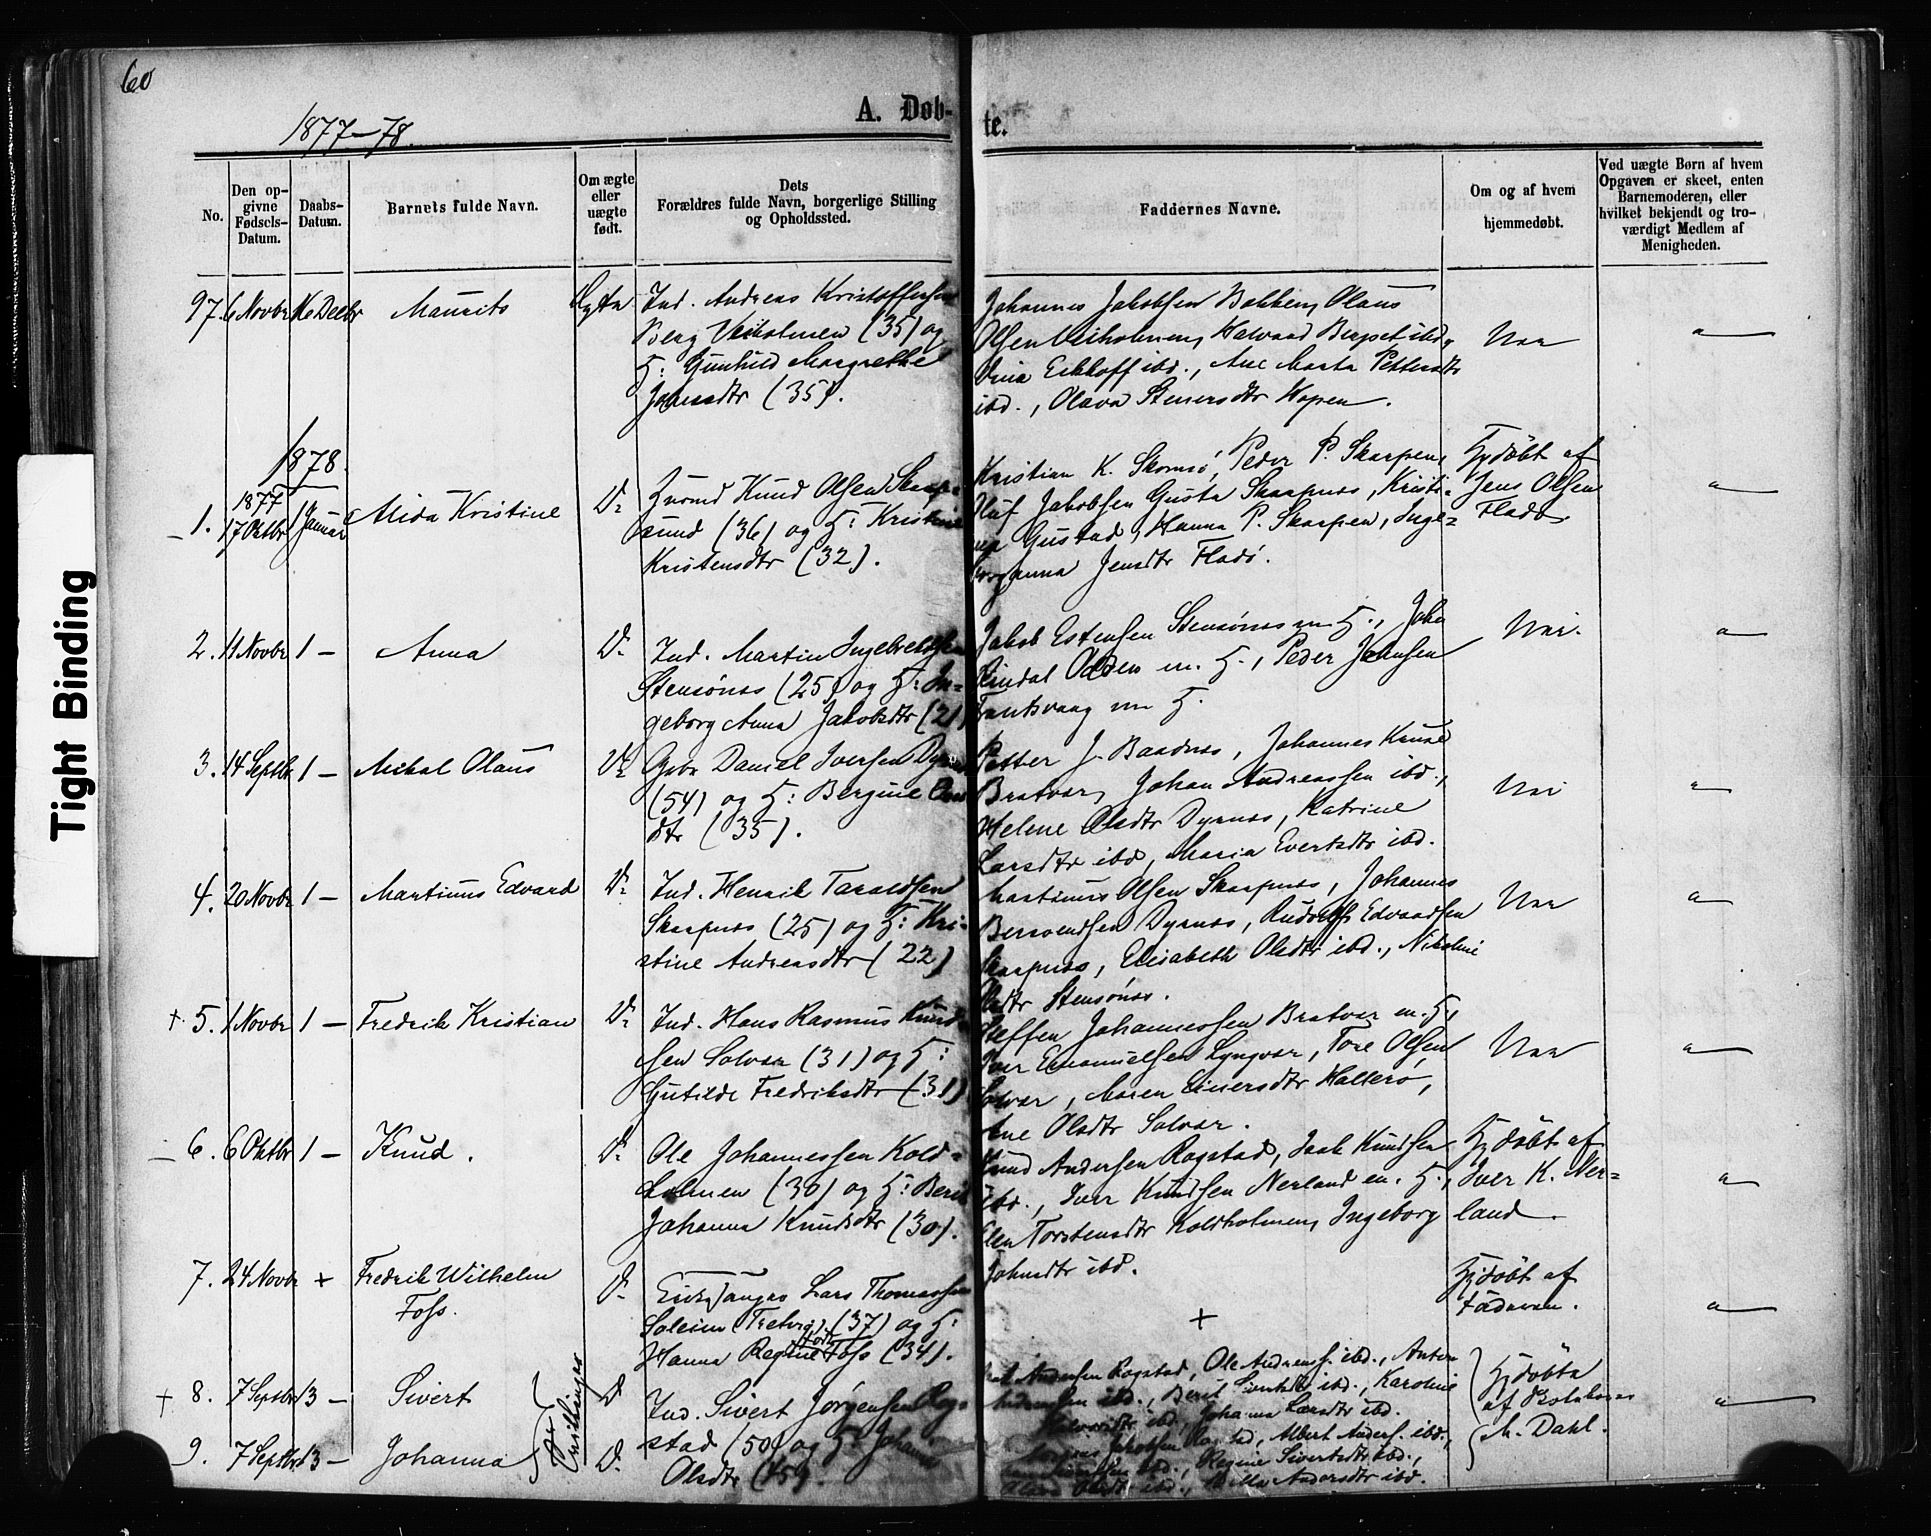 60
1877-78.
A. Døb-
te.
No.
Den op-
givne
Fødsels-
Datum.
Daabs-
Datum.
Barnets fulde Navn.
Om ægte
eller
uægte
født.
Dets
Forældres fulde Navn, borgerlige Stilling
og Opholdssted.
Faddernes Navne.
Om og af hvem
hjemmedøbt.
Ved uægte Børn af hvem
Opgaven er skeet, enten
Barnemoderen, eller
hvilket bekjendt og tro-
værdigt Medlem af
Menigheden.
97. 6 Novbr 16 Decbr Maurits Ægte Ind. Andreas Kristoffersen
Berg Veiholmen (35) og
H: Gunhild Margrethe
Johnsdtr (35).
Johannes Jakobsen Bakken, Olaus
Olsen Veiholmen, Halvard Bergset ibd.,
Eckhoff ibd., Ane Marta Pettersdtr
ibd., Olava Steuersdtr Hopen.
1878.
1. 1877 17 Oktbr 1 Januar Alida Kristine D. Knud Olsen Skarp-
sund (36) og H: Kristine
Kristensdtr (32).
Kristian K. Skomsø, Peder P. Skarpen,
Oluf Jakobsen Gusta Skarpnes, Kristi-
Gustad, Hanna P. Skarpen, Inge-
anna Jensdtr Fladø.
Hjdøbt af
Jens Olsen
Fladø.
2. 11 Novbr 1 - Anna D. Ind. Martin Ingebretsen
Stensønes (25) og H: In-
geborg Anna Jakobsdtr (21)
Jakob Estensen Stensønes m H., John
Rindal Odden m. H., Peder Johnsen
Frantsvaag m H.
Nei.
3. 14 Septbr 1 - Mikal Olaus D. Gbr Daniel Iversen Dyrnes
(54) og H: Bergine
dtr (35).
Petter J. Baadnes, Johannes Knuse
Bratvær, Johan Andreassen ibd.,
Helene Olsdtr Dyrnes, Katrine
Larsdtr ibd, Maria Evertsdtr ibd.
Nei
4. 20 Novbr 1 - Martinus Edvard D. Ind. Henrik Taraldsen
Skarpnes (25) og H: Kri-
stine Andreasdtr (22)
Martinus Olsen Skarpnes, Johannes
Berwendsen Dyrnes, Rudolf Edvardsen
Skarpnes, Elisabeth Olsdtr ibd., Nikoline
Olsdtr Stensønes.
Nei
+ 5. 1 Novbr 1 - Fredrik Kristian D. Ind. Hans Rasmus Knud-
sen Solvær (31) og H:
Gutilde Fredriksdtr (31)
Steffen Johannessen Bratvær m. H.,
Iver Emanuelsen Lyngvær, Tore Olsen
Solvær, Maren Einersdtr Halterø,
Ane Olsdtr Solvær.
Nei
6. 6 Oktbr 1 - Knud. D. Ole Johannessen Kold-
holmen (30) og H: Berit
Johanna Knudsdtr (30).
Knud Andersen Rogstad, Isak Knudsen
ibd., Iver Knudsen Nerland m. H.,
Elen Torstensdtr Koldholmen, Ingeborg
Johnsdtr ibd.
Hjdøbt af
Iver K. Ner-
land.
7. 24 Novbr + Fredrik Wilhelm
Foss.
D. Lars Thomassen
Soleim (37) og H:
Hanna Regine født Foss (34).
+
Hjdøbt af
Faderen.
+ 8. 7 Septbr 13 - Sivert D
9. 7 Septbr 13 - Johanna D.
Tvillinger
Ind. Sivert Jørgensen Rog-
stad (50) og H: Johanna
Olsdtr (45).
Andersen Rogstad, Ole Andreass. ibd., Anton
Andreassen ibd., Berit Sivertsdtr ibd., Karoline
Halvorsdtr ibd., Johanna Larsdtr ibd.
Jakobsen Rogstad, Albert Anders. ibd.,
ibd., Regine Sivertsdtr ibd.,
Olsdtr ibd., Andersdtr ibd.
Hjdøbte
af
M. Dahl.
Tight Binding